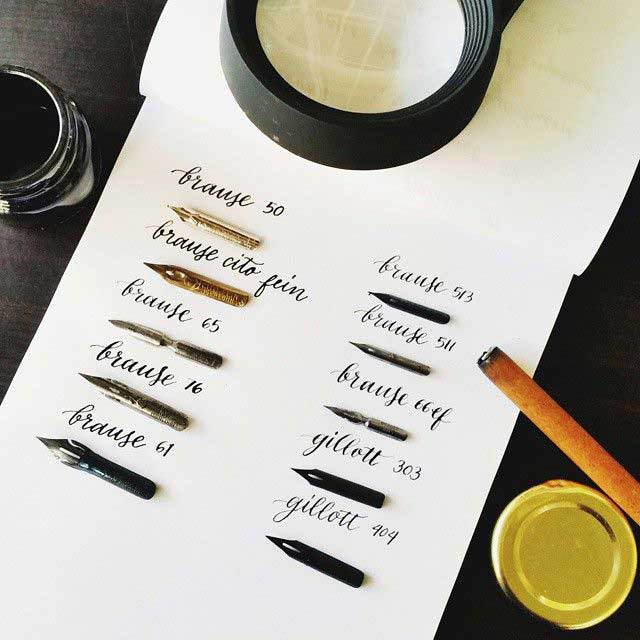 brause 50
brause cito fein
brause 65
brause 16
brause 61
brause 513
brause 511
brause 66ef
gillott 303
gillott 404